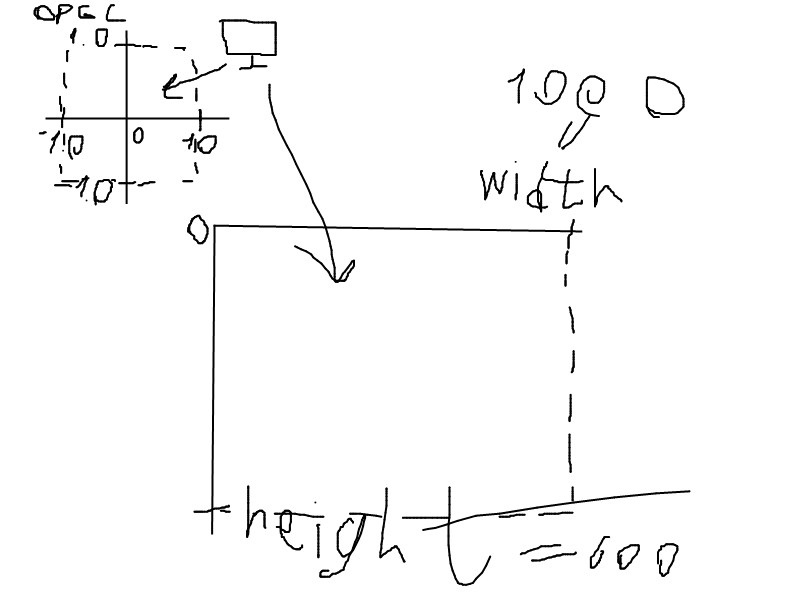 OPGL
1.0
-1.0 0 1.0
-1.0
1000
=
width
0
height = 600